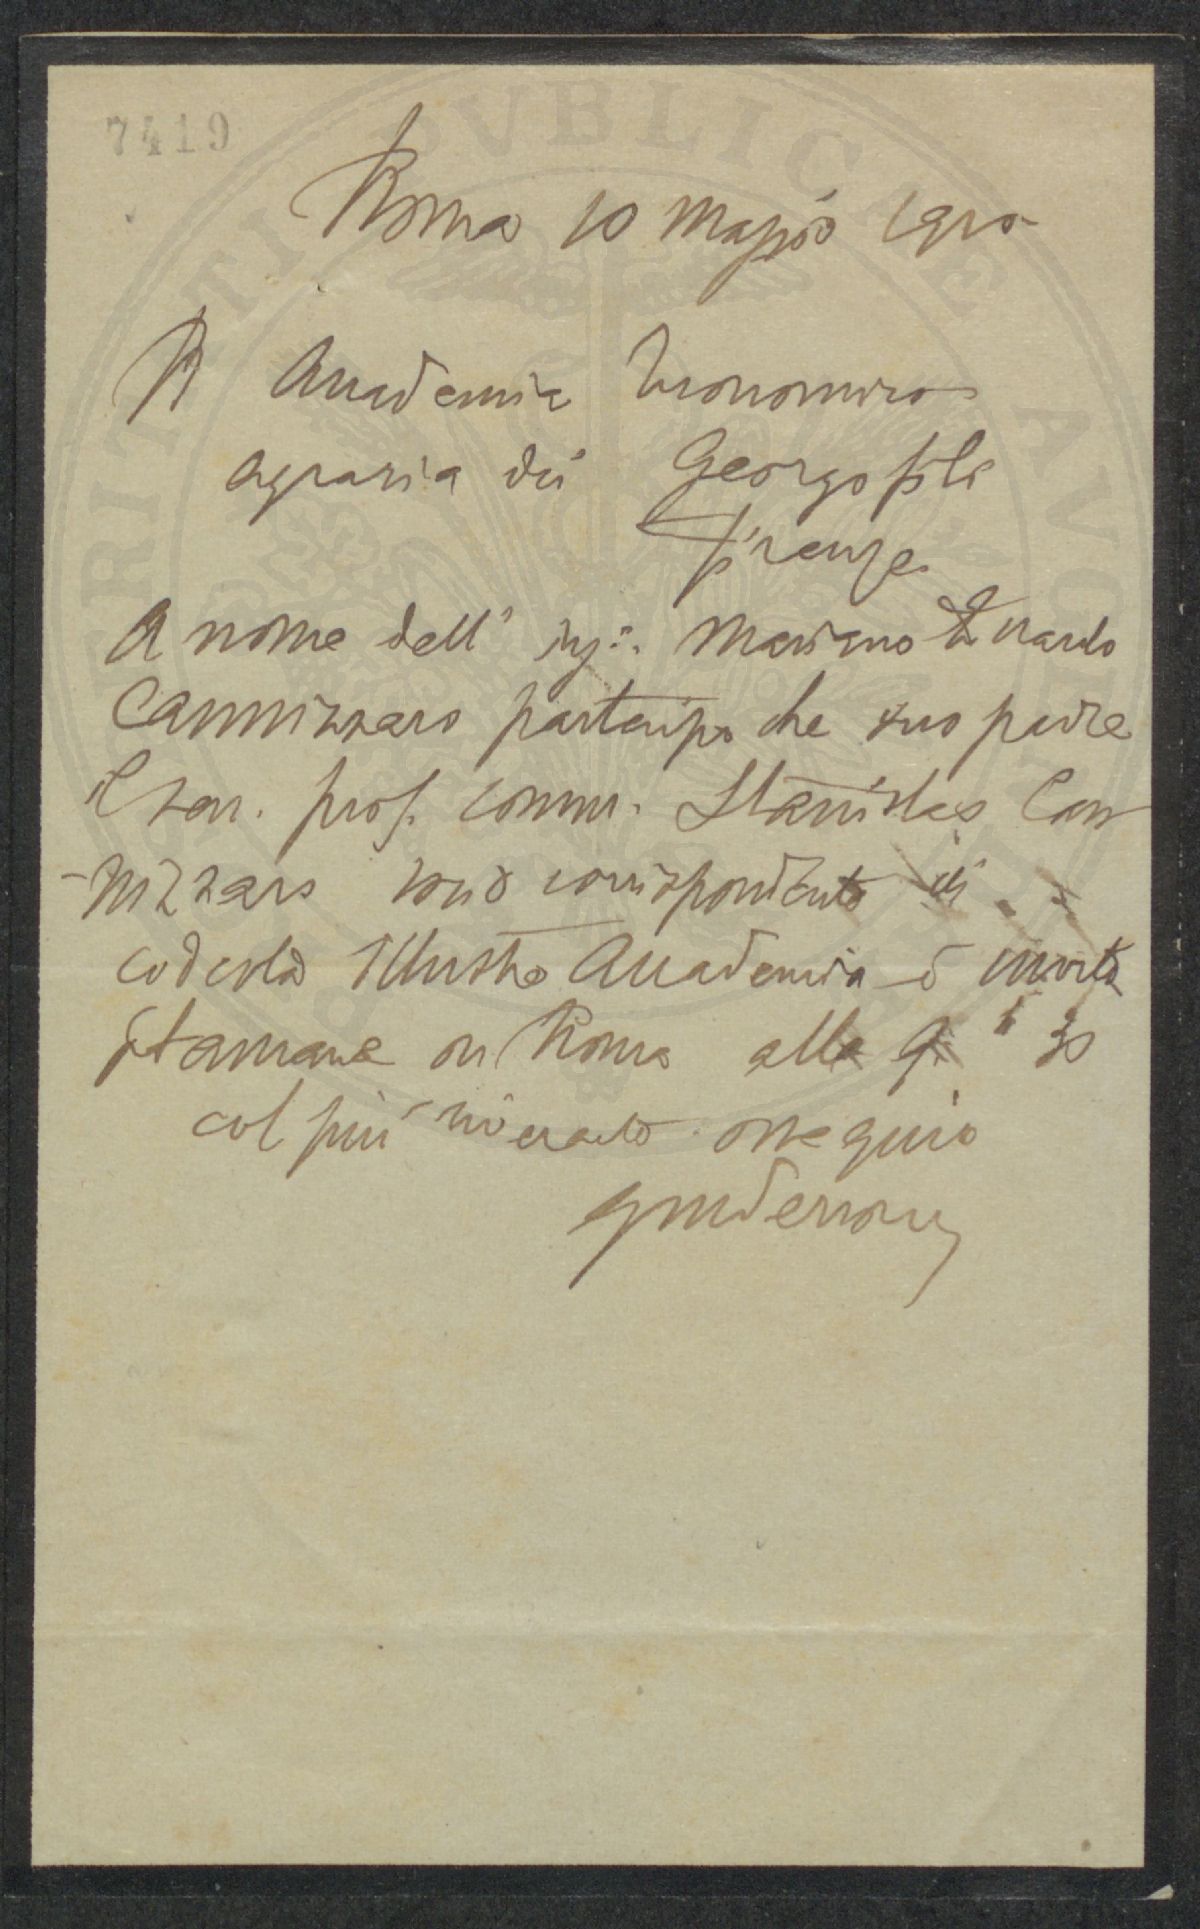 7419
Roma 10 maggio 1910
R Accademia Economico
agraria dei Georgofili
Firenze
A nome dell' ing. Mariano Eduardo
Cannizzaro partecipo che suo padre
il sen. prof. comm. Stanislao Can
-nizzaro socio corrispondente di
codesta Illustre Accademia è morto
stamane in Roma alle 9 30
col più sincero ossequio